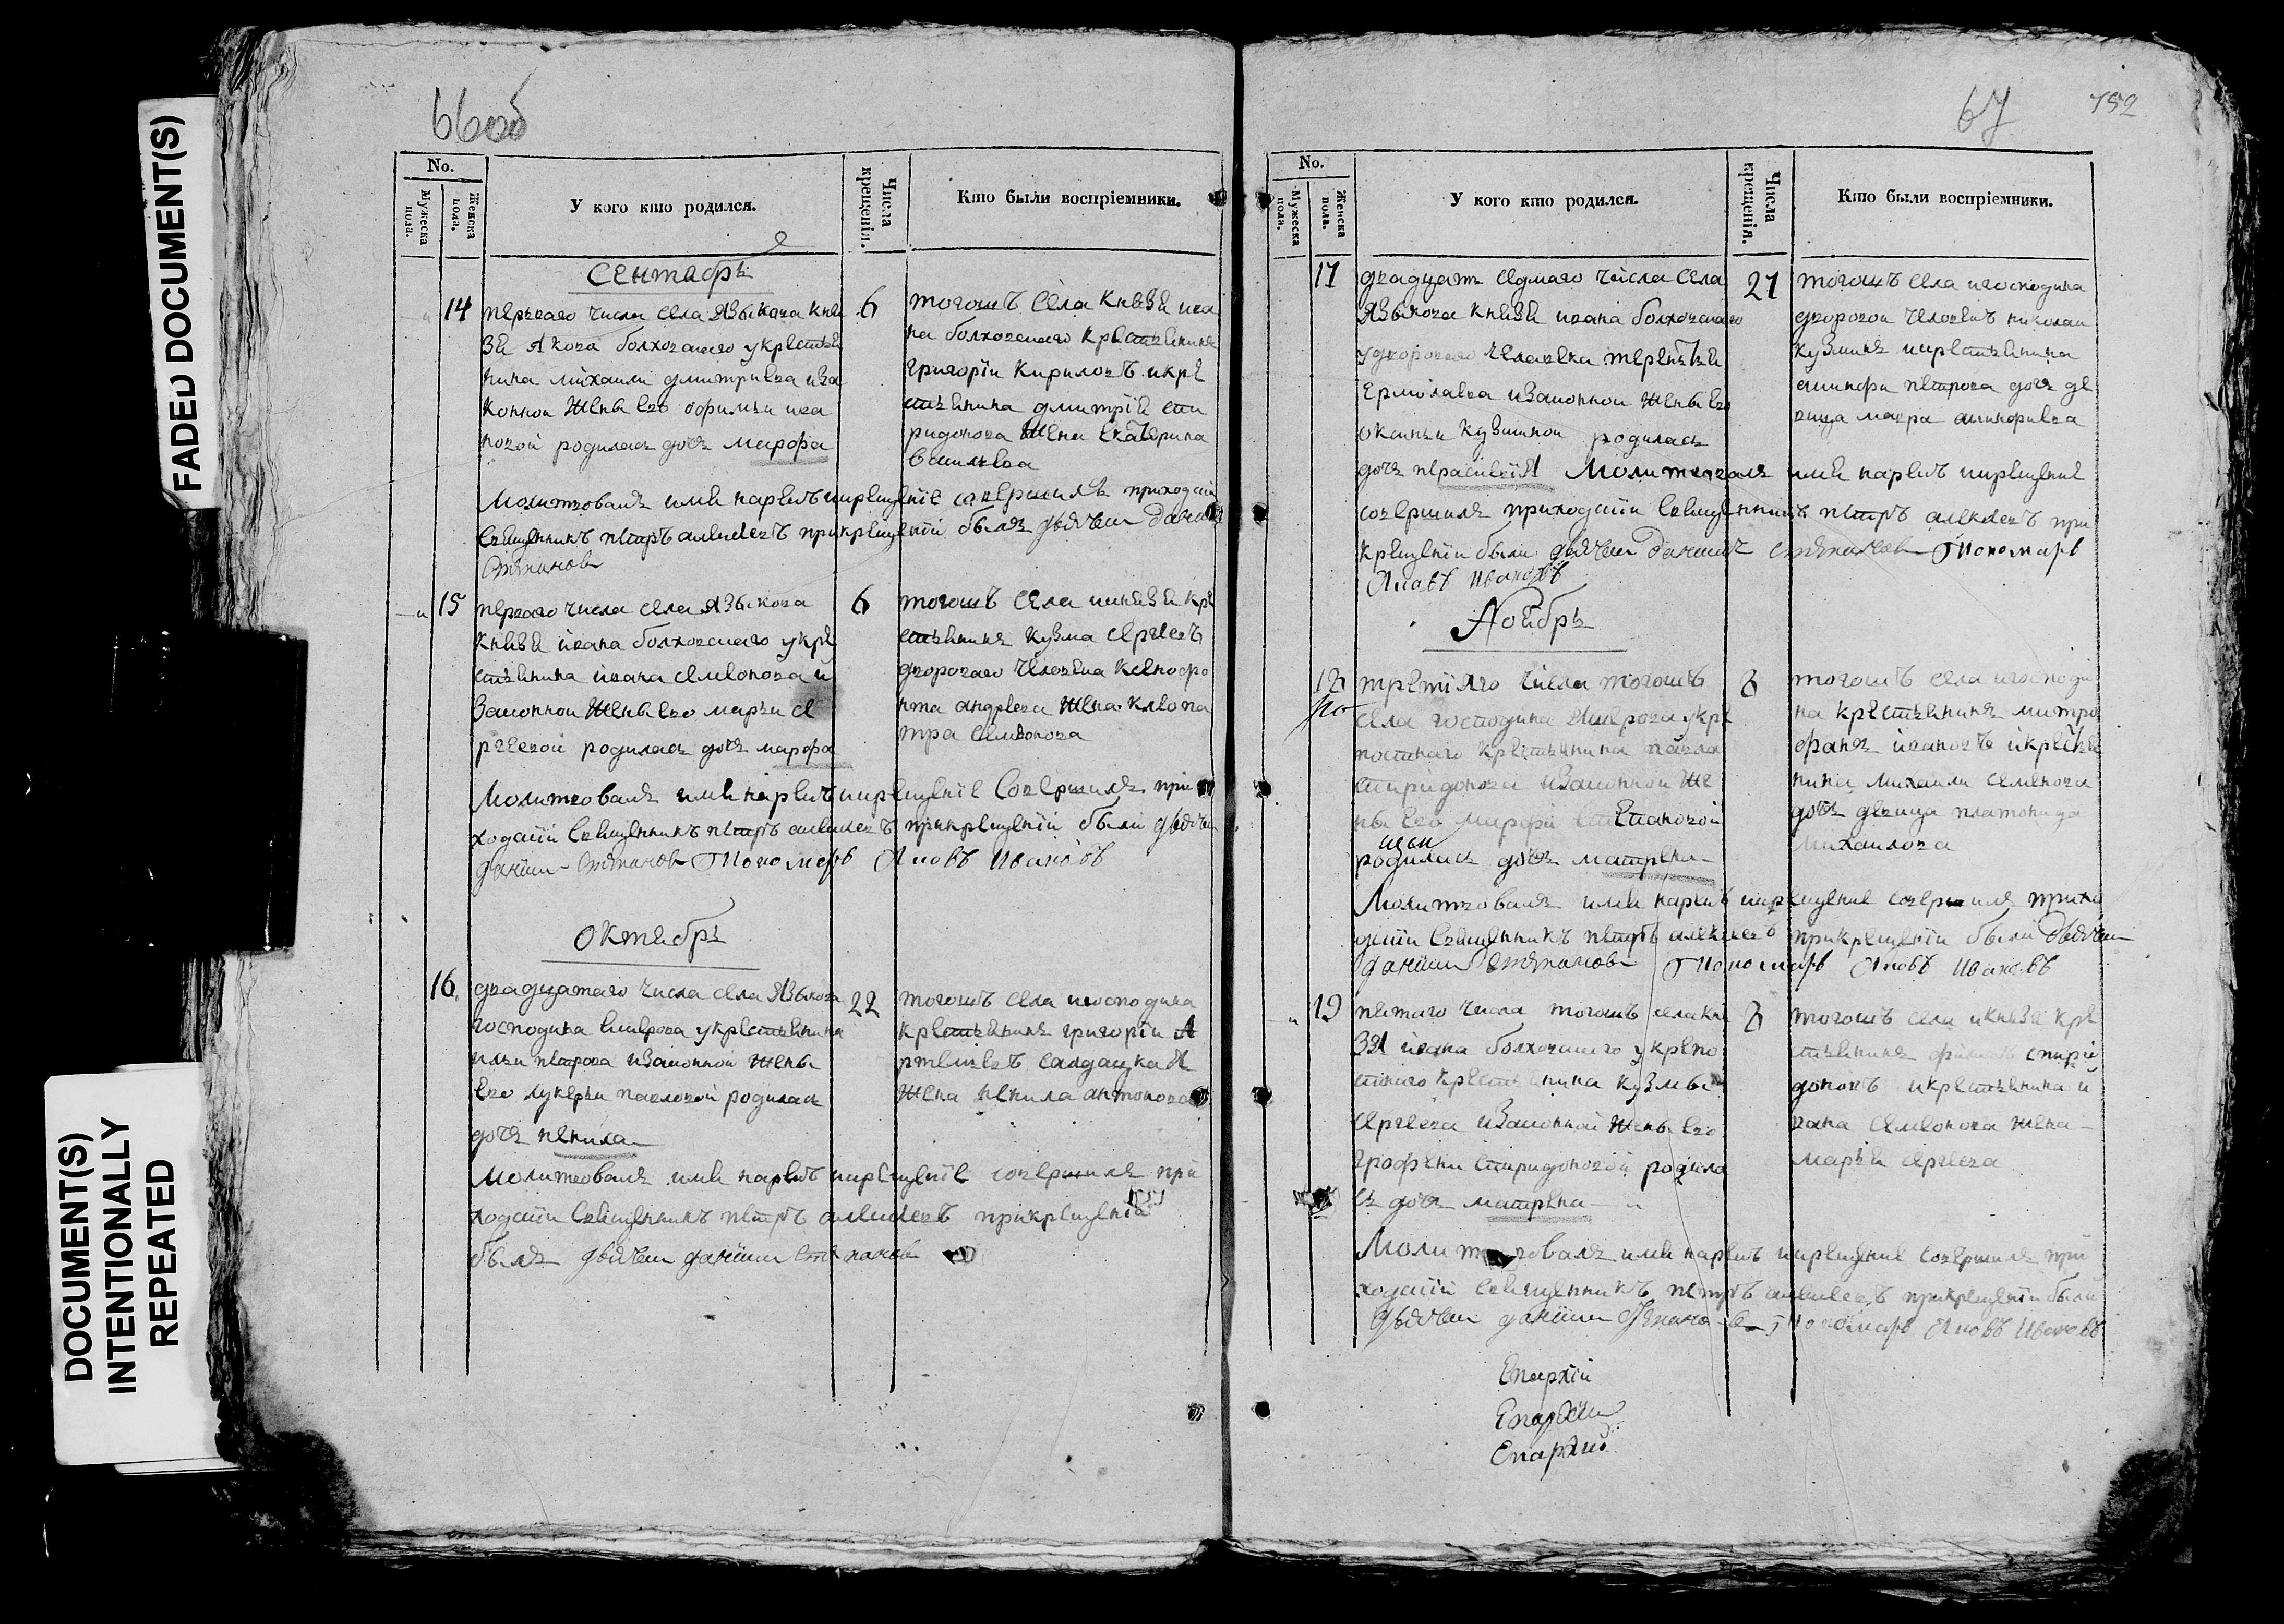 FADED DOCUMENT(S)
DOCUMENT(S)
INTENTIONALLY
REPEATED
66об
No.
Мужеска пола.
Женска пола.
У кого кто родился.
Числа крещенія.
Кто были воспріемники.
Сентябрь
14
перваго числа села Языкова кня
зя Якова болховскаго укрестья
нина михаила дмитриева иза
конной жены его
новой родилась дочь марфа
6
тогожъ села князя ива
на болховскаго крестьянинъ
григорїи кириловъ икре
стьянина дмитрїя спи
ридонова жена екатерина
васильева
Молитвовалъ имя нарекъ икрещенїе совершилъ приходскїи
священникъ петръ алексеевъ прикрещенїи былъ дьячекъ
Степановъ
15
перваго числа села Языкова
князя ивана болховскаго укре
стьянина ивана семионова и
законной жены его марьи се
ргеевой родилась дочь марфа
6
тогожъ села икнязя кре
стьянинъ кузма сергеевъ
двороваго человека ксенофо
нта андреева жена клеопа
тра семионова
Молитвовалъ имя нарекъ икрещенїе совершилъ при
ходскїй священникъ петръ алексеевъ прикрещенїи были дьячекъ
данїилъ Степановъ Пономарь Яковъ Ивановъ
Октябрь
16
двадцатаго числа села Языкова
господина укрестьянина
ильи петрова изаконной жены
его лукерьи павловой родилась
дочь ненила
22
тогожъ села игосподина
крестьянинъ григорїи а
ртемьевъ салдацкая
жена ненила антонова
Молитвовалъ имя нарекъ икрещенїе совершилъ при
ходскїи священникъ петръ алексеевъ прикрещенїи
былъ дьячекъ данїилъ степановъ
67
752
No.
Мужеска пола.
Женска пола.
У кого кто родился.
Числа крещенія.
Кто были воспріемники.
17
двадцать седмаго числа села
Языкова князя ивана болховскаго
удвороваго человека терентья
Ермолаева изаконной жены его
оксиньи кузминой родилась
дочь
27
тогожъ села игосподина
дворовой человекъ николаи
кузминъ икрестьянина
петрова дочь де
вица мавра
Молитвовалъ имя нарекъ икрещение
совершилъ приходскїи священникъ петръ алексеевъ при
крещенїи были дьячекъ данїилъ степановъ Пономарь
Яковъ Ивановъ
Ноябрь
18
третїяго числа тогожъ
села господина укре
постнаго крестьянина павла
спиридонова изаконной же
ны его
родилась дочь матрена
8
тогожъ села игосподи
на крестьянинъ митро
фанъ ивановъ икрестья
нина михаила семенова
дочь девица платонида
михаилова
Молитвовалъ имя нарекъ икрещение совершилъ прихо
дскїи священникъ петръ алексеевъ прикрещенїи были дьячекъ
данїилъ степановъ Пономарь Яковъ Ивановъ
19
пятаго числа тогожъ села кня
зя ивана болховскаго укрепо
стнаго крестьянина кузмы
сергеева изаконной жены его
графены спиридоновой родила
сь дочь матрена
8
тогожъ села икнязя кре
стьянинъ спири
доновъ икрестьянина и
вана семионова жена
марья сергеева
Молитвовалъ имя нарекъ икрещение совершилъ при
ходскїй священникъ петръ алексеевъ прикрещенїи были
дьячекъ данїилъ Степановъ Пономарь Яковъ Ивановъ
Епархїи
Епархїи
Епархїи